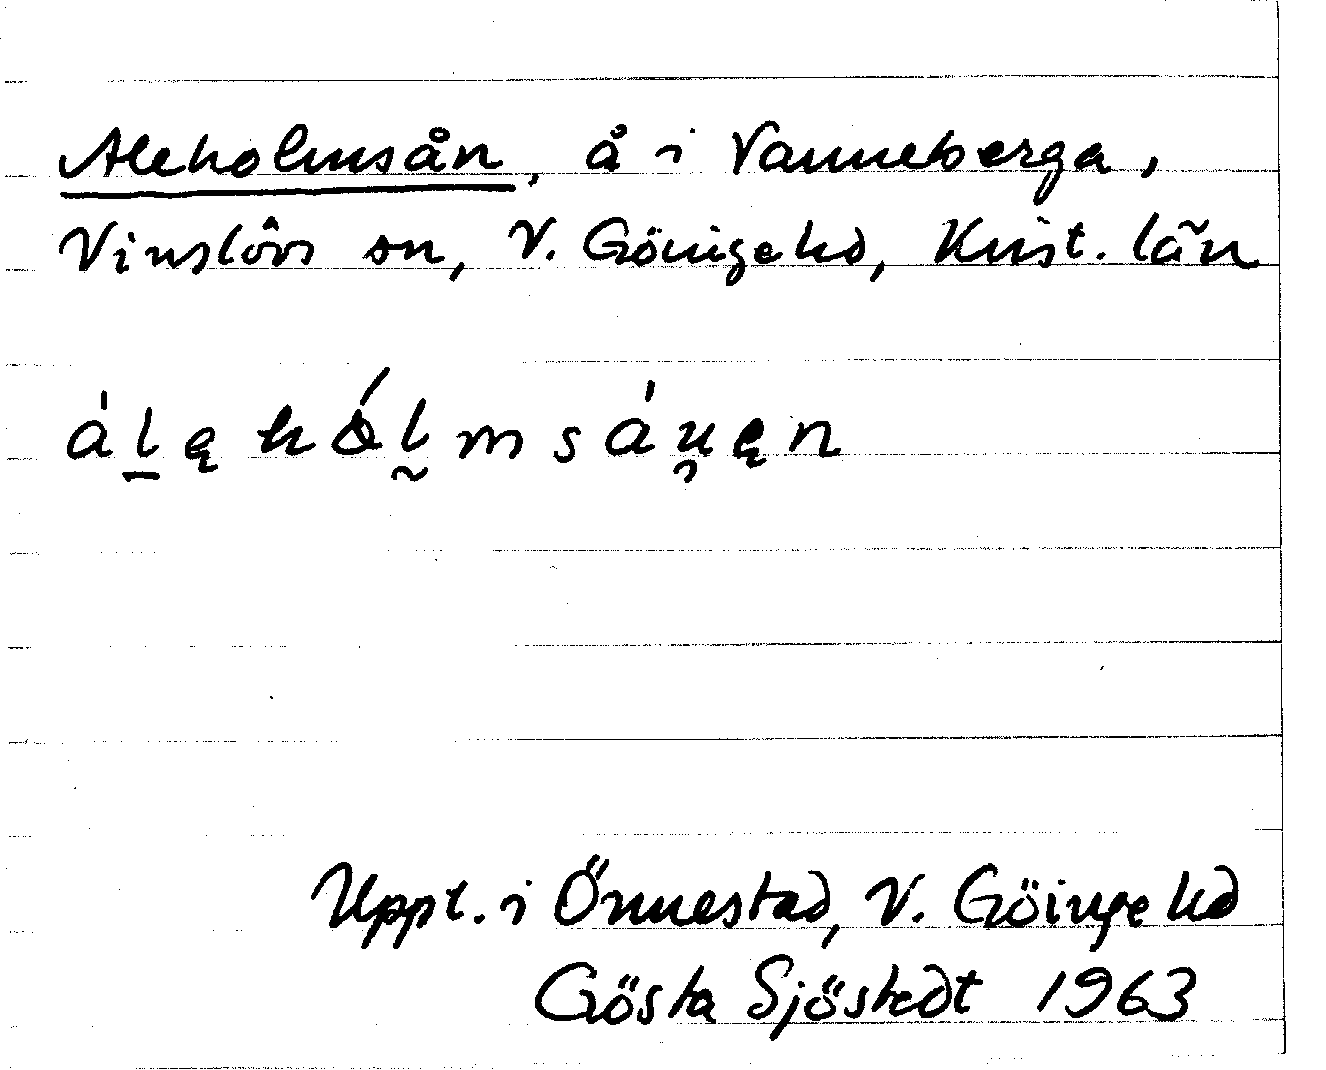 Aleholmsån, å i Vanneberga,
Vinslövs sn, V. Göingehd, Krist. län
álęhólmsáu̯ęn
Uppt. i Önnestad, V. Göingehd
Gösta Sjöstedt 1963